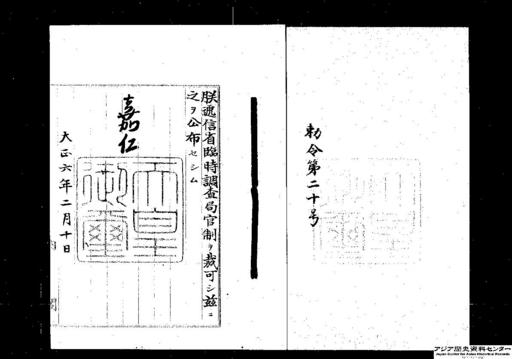 勅令第二十号
朕逓信省臨時調査局官制ヲ裁可シ玆ニ
之ヲ公布セシム
嘉仁
天皇御璽
大正六年二月十日
内閣
アジア歴史資料センター
Japan Center for Asian Historical Records